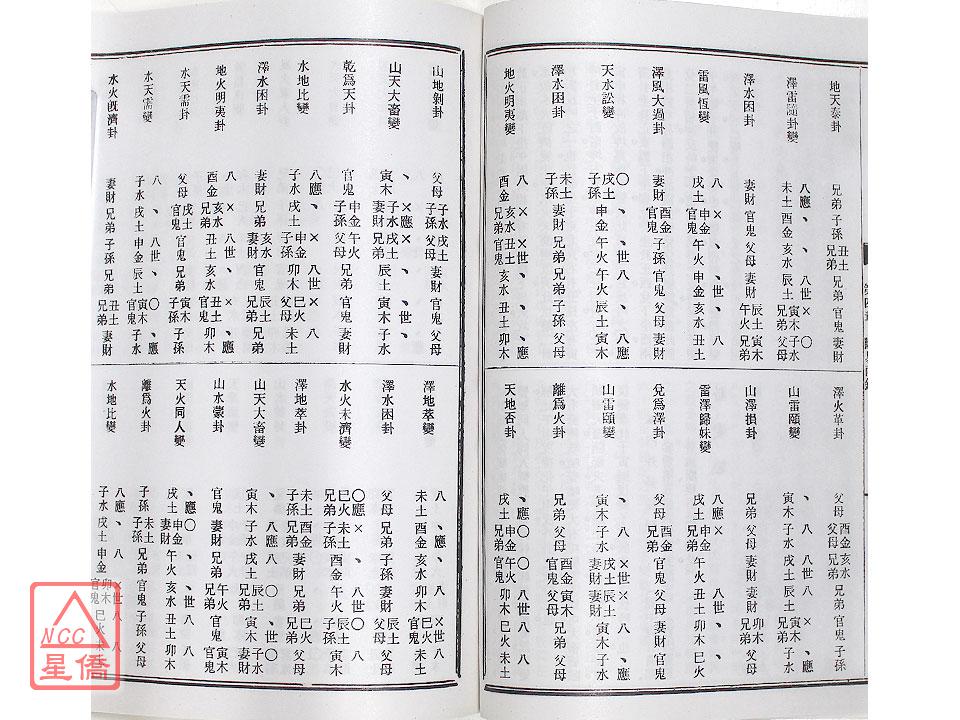 地天泰卦 兄弟 子孫 丑土兄弟 兄弟 官鬼 妻財
澤雷隨卦變 八應 、 、 八世 × 〇
未土 酉金 亥水 辰土 寅木兄弟 子水父母
澤水困卦 妻財 官鬼 父母 妻財 辰土午火 寅木兄弟
雷風恆變 八 × 、 、世 、 八
戌土 申金官鬼 午火 申金 亥水 丑土
澤風大過卦 妻財 酉金官鬼 子孫 官鬼 父母 妻財
天水訟變 〇 、 、 八 、 八應
未土子孫 申金 午火 午火 辰土 寅木
澤水困卦 子孫 妻財 兄弟 兄弟 子孫 父母
地火明夷變 八 × ×世 、 八 、應
酉金 亥水兄弟 丑土官鬼 亥水 丑土 卯木
澤火革卦 父母 酉金父母 亥水兄弟 兄弟 官鬼 子孫
山雷頤變
寅木 子水 戌土 辰土 寅木兄弟 子水
山澤損卦 兄弟 父母 妻財 妻財 卯木兄弟 父母
雷澤歸妹變
戌土 申金兄弟 午火 丑土 卯木 巳火
兌爲澤卦 父母 酉金兄弟 官鬼 父母 妻財 官鬼
山雷頤變
寅木 子水 戌土妻財 辰土妻財 寅木 子水
離爲火卦 兄弟 父母 酉金官鬼 寅木兄弟 子孫 父母
天地否卦
戌土 申金兄弟 午火官鬼 卯木 巳火 未土
山地剝卦 父母 子水子孫 戌土父母 兄弟 官鬼 父母
山天大畜變
寅木 子水妻財 戌土兄弟 辰土 寅木 子水
乾爲天卦 官鬼 申金子孫 午火父母 兄弟 官鬼 妻財
水地比變
子水 戌土 申金子孫 卯木 巳火父母 未土
澤水困卦 妻財 兄弟 亥水妻財 官鬼 辰土兄弟 兄弟
地火明夷卦 八 × 八世 、 × 、應
酉金 亥水兄弟 丑土 亥水 丑土官鬼 卯木
水天需卦 父母 戌土官鬼 官鬼 兄弟 寅木子孫 子孫
水天需變
子水 戌土 申金 辰土 寅木官鬼 子水
水火旣濟卦 妻財 兄弟 子孫 兄弟 丑土兄弟 妻財
澤地萃變
未土 酉金 亥水 卯木 巳火官鬼 未土
澤水困卦 父母 兄弟 子孫 妻財 辰土父母 父母
水火未濟變
巳火兄弟 未土子孫 酉金 午火 辰土子孫 寅木
澤地萃卦 未土子孫 酉金兄弟 妻財 兄弟 巳火兄弟 父母
山天大畜變
寅木 子水 戌土 辰土兄弟 寅木 子水妻財
山水蒙卦 官鬼 妻財 兄弟 午火兄弟 官鬼 寅木官鬼
天火同人變
戌土 申金妻財 午火 亥水 丑土 卯木
離爲火卦 子孫 未土子孫 兄弟 官鬼 子孫 父母
水地比變
子水 戌土 申金 卯木官鬼 巳火
NCC
星僑